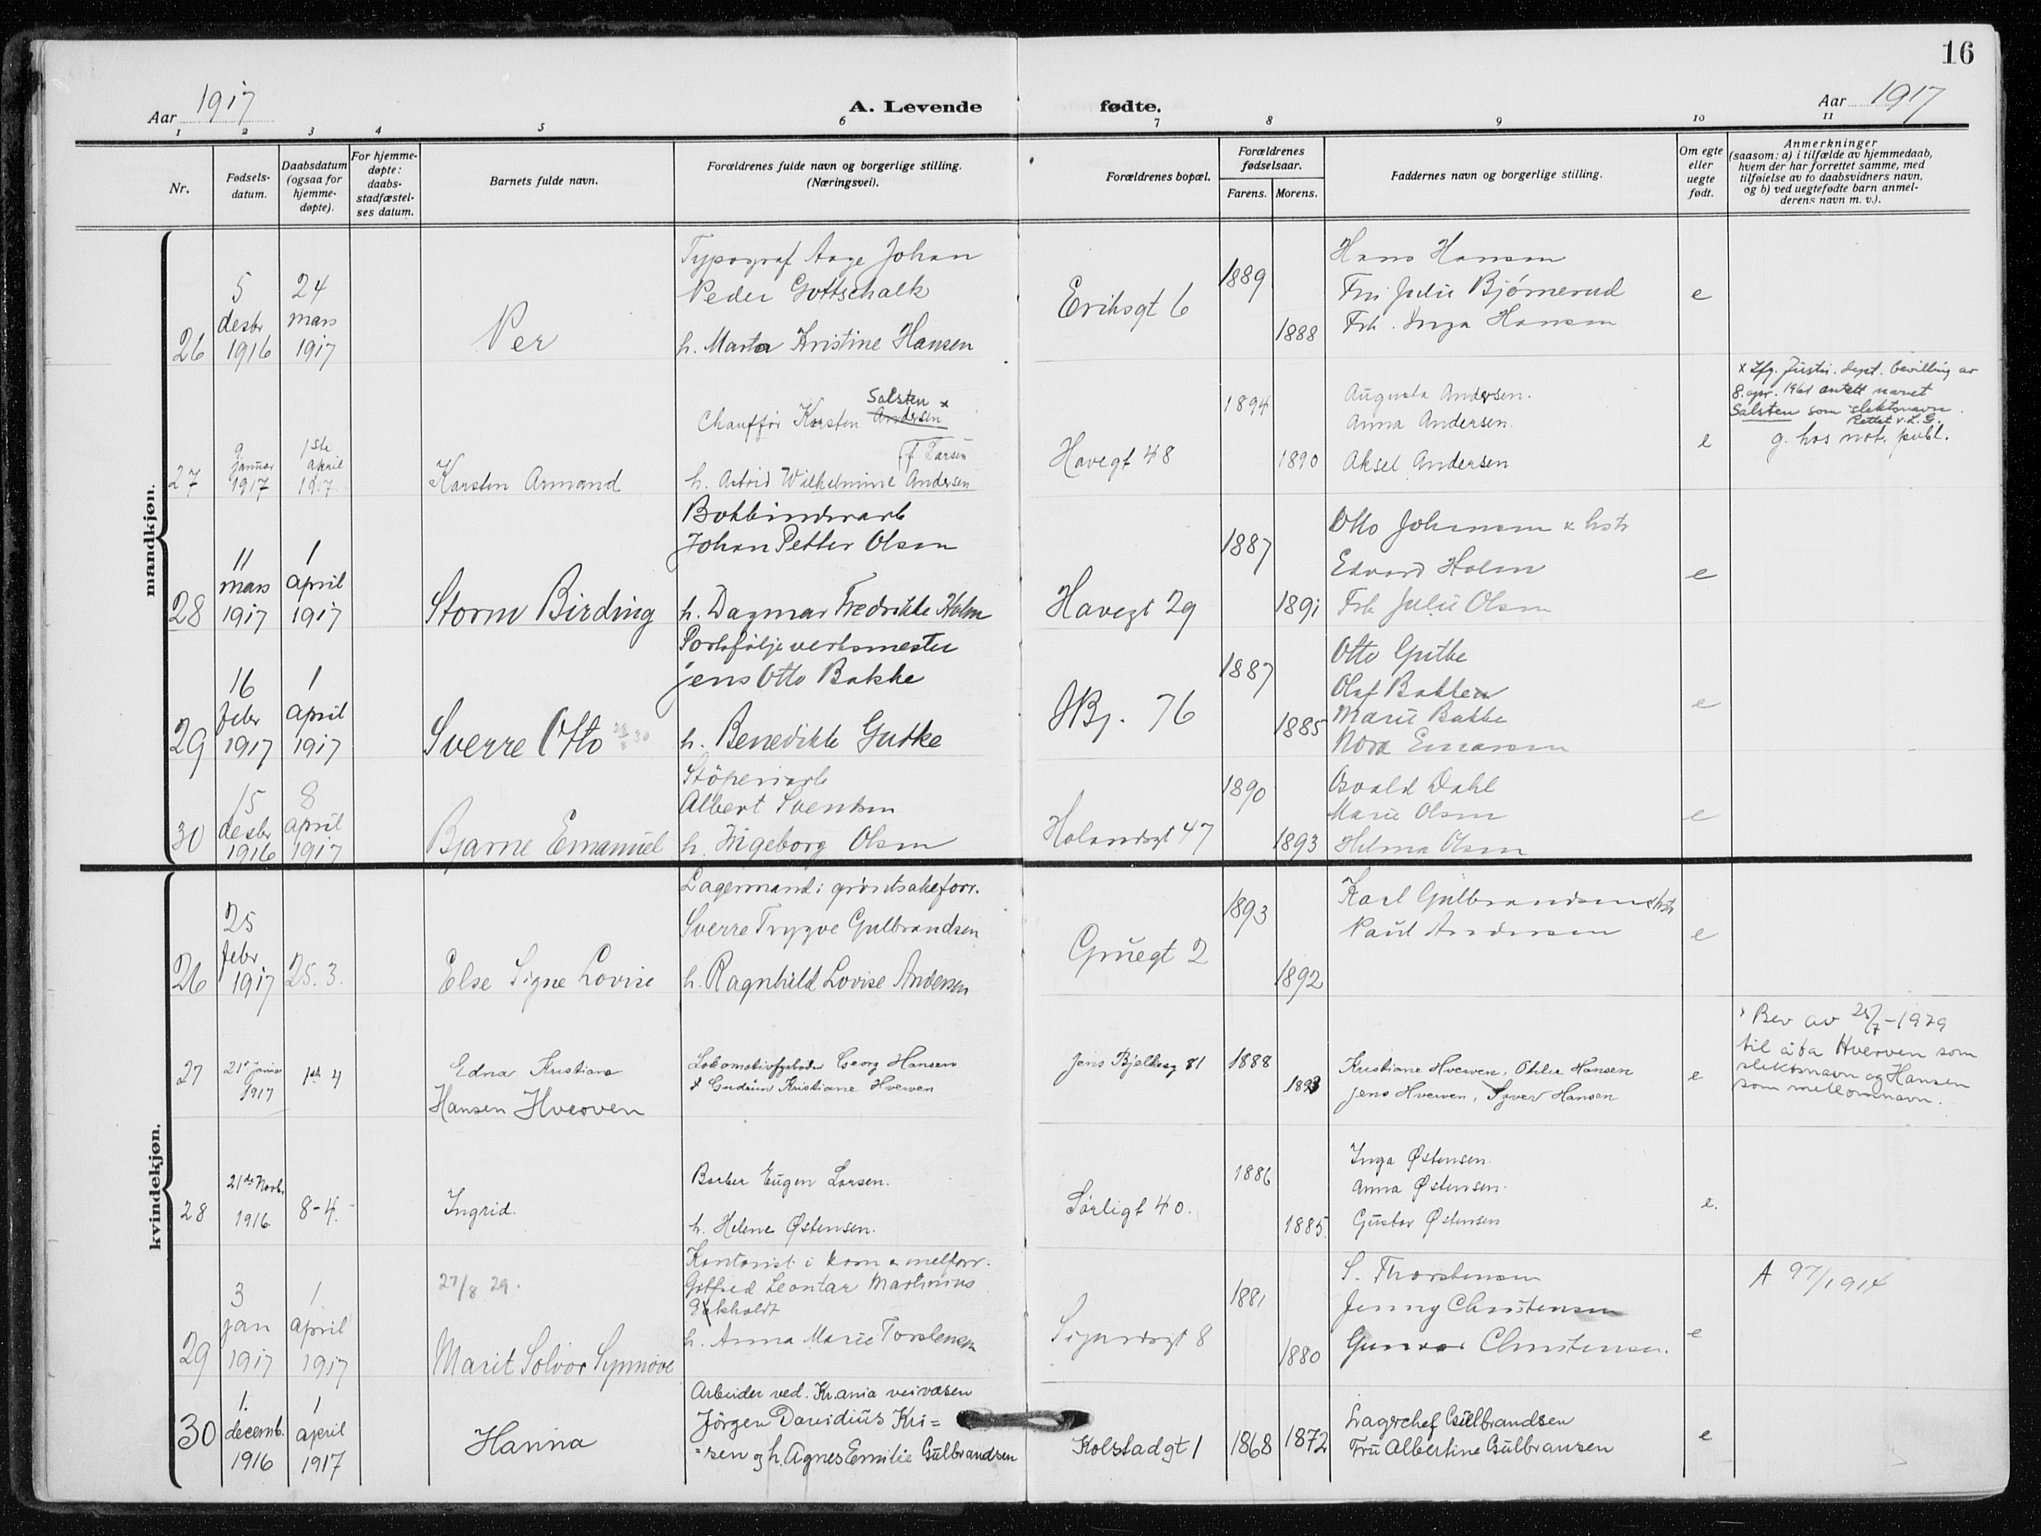 16
Aar 1917
A. Levende
fødte.
Aar 1917
1 2 3 4 5 6 7 8 9 10 11
Nr.
Fødsels-
datum.
Daabsdatum
(ogsaa for
hjemme-
døpte).
For hjemme-
døpte:
daabs-
stadfæstel-
ses datum.
Barnets fulde navn.
Forældrenes fulde navn og borgerlige stilling.
(Næringsvei).
Forældrenes bopæl.
Forældrenes
fødselsaar.
Farens. Morens.
Faddernes navn og borgerlige stilling.
Om egte
eller
uegte
født.
Anmerkninger
(saasom: a) i tilfælde av hjemmedaab,
hvem der har forrettet samme, med
tilføielse av to daabsvidners navn,
og b) ved uegtefødte barn anmel-
derens navn m. v.).
mandkjøn.
26
5
desbr
1916
24
mars
1917
Per
Typograf Aage Johan
Peder Gottschalk
h. Marta Kristine Hansen
Eriksgt 6
1889
1888
Hans Hansen
Fru Julie Bjørnerud
Frk. Inga Hansen
e
27
9
januar
1917
1ste
april
Karsten Armand
Salsten x
Chauffør Karsten Andersen
f. Larsen
h. Astrid Wilhelmine Andersen
Havegt 48
1894
1890
Augusta Andersen.
Anna Andersen.
Aksel Andersen
e
x Ifg. Justis. dept. bevilling av
8. apr. 1961 antatt navnet
Salsten som slektsnavn.
Rettet v. L. G.
g. hos not. publ.
28
11
mars
1917
1
april
1917
Storm Birding
Bokbinderarb
Johan Petter Olsen
h. Dagmar Fredrikke Holm
Havegt 29
1887
1891
Otto Johansen & hstr
Edvard Holm
Frk Julie Olsen
e
29
16
febr
1917
1
april
1917
Sverre Otto
Porteføljeverksmester
Jens Otto Bakke
h. Benedikte Gutke
JBj. 76
1887
1885
Otto Gutke
Olaf Bakken
Marie Bakke
Nora Einarsen
e
30
15
desbr
1916
8
april
1917
Bjarne Emanuel
Støperiarb
Albert Svendsen
h. Ingeborg Olsen
Holandsgt 47
1890
1893
Osvald Dahl
Marie Olsen
Helma Olsen
e
kvindekjøn.
26
25
febr
1917
25. 3.
Else Signe Lovise
Lagermand i grøntsakeforr.
Sverre Trygve Gulbrandsen
h. Ragnhild Lovise Andersen
Gruegt 2
1893
1892
Karl Gulbrandsen & hstr
Paul Andersen
e
27
1917
1ste 4
Edna Kristiane
Hansen Hverven
Lokomotivfyrbøder Georg Hansen
& Gudrun Kristiane Hverven
Jens Bjelkesg 81
1888
1893
Kristiane Hverven, Othlie Hansen
Jens Hverven, Syver Hansen
e
Bev av 25/7-1929
til å ta Hverven som
slektsnavn og Hansen
som mellomnavn.
28
21de Novbr.
1916
8-4.
Ingrid.
Barber Eugen Larsen.
h. Helene Østensen.
Sørligt 40.
1886
1885.
Inga Østensen.
Anna Østensen.
Gustav Østensen
e.
29
3
jan
1917
1
april
1917
27/8 29.
Marit Solvor Synnøve
Kontorist i korn & melforr.
Gotfred Leontar Martinius
Eekholdt
h. Anna Marie Torstensen
Sigurdsgt 8
1881
1880
S. Thorstensen
Jenny Christensen
Gunvor Christensen.
e
A 97/1914
30
1.
decemb.
1916
1
april
1917
Hanna
Arbeider ved. Kr.ania veivæsen
Jörgen Davidius Kri=
=sen og h. Agnes Emilie Gulbrandsen
Kolstadgt 1
1868
1872
Lagerchef Gulbrandsen
Fru Albertine Gulbransen
e